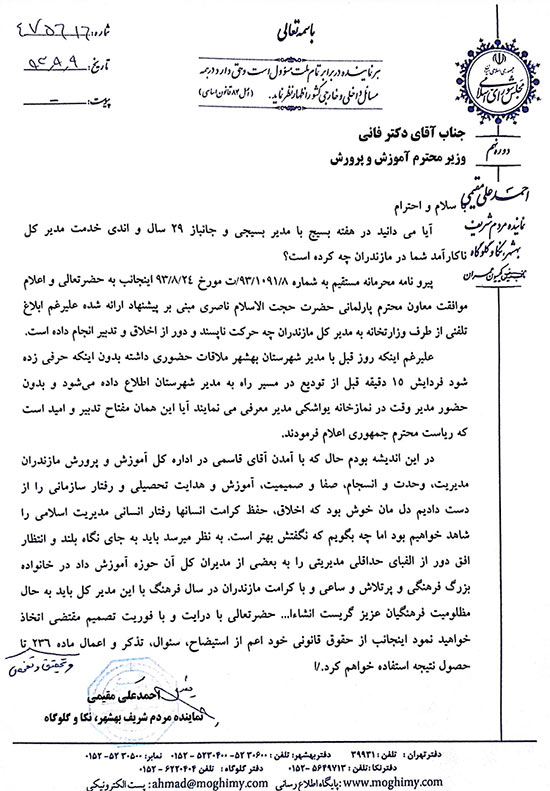 باسمه تعالی
شماره: ۴۷۵۶۱۶
تاریخ: ۹۳،۹،۹
پیوست: –
هر نماینده در برابر تمام ملت مسؤول است و حق دارد در همه
مسائل داخلی و خارجی کشور اظهار نظر نماید. (اصل ۸۴ قانون اساسی)
جمهوری اسلامی ایران
مجلس شورای اسلامی
دوره نهم
احمد علی مقیمی
نماینده مردم شریف
بهشهر، نکا و گلوگاه
جناب آقای دکتر فانی
وزیر محترم آموزش و پرورش
با سلام و احترام
آیا می دانید در هفته بسیج با مدیر بسیجی و جانباز ۲۹ سال و اندی خدمت مدیر کل
ناکارآمد شما در مازندران چه کرده است؟
پیرو نامه محرمانه مستقیم به شماره ۹۳/۱۰۹۱/۸/ت مورخ ۹۳/۸/۲۴ اینجانب به حضرتعالی و اعلام
موافقت معاون محترم پارلمانی حضرت حجت الاسلام ناصری مبنی بر پیشنهاد ارائه شده علیرغم ابلاغ
تلفنی از طرف وزارتخانه به مدیر کل مازندران چه حرکت ناپسند و دور از اخلاق و تدبیر انجام داده است.
علیرغم اینکه روز قبل با مدیر شهرستان بهشهر ملاقات حضوری داشته بدون اینکه حرفی زده
شود فردایش ۱۵ دقیقه قبل از تودیع در مسیر راه به مدیر شهرستان اطلاع داده می‌شود و بدون
حضور مدیر وقت در نمازخانه یواشکی مدیر معرفی می نمایند آیا این همان مفتاح تدبیر و امید است
که ریاست محترم جمهوری اعلام فرمودند.
در این اندیشه بودم حال که با آمدن آقای قاسمی در اداره کل آموزش و پرورش مازندران
مدیریت، وحدت و انسجام، صفا و صمیمیت، آموزش و هدایت تحصیلی و رفتار سازمانی را از
دست دادیم دل مان خوش بود که اخلاق، حفظ کرامت انسانها رفتار انسانی مدیریت اسلامی را
شاهد خواهیم بود اما چه بگویم که نگفتش بهتر است. به نظر میرسد باید به جای نگاه بلند و انتظار
افق دور از الفبای حداقلی مدیریتی را به بعضی از مدیران کل آن حوزه آموزش داد در خانواده
بزرگ فرهنگی و پرتلاش و ساعی و با کرامت مازندران در سال فرهنگ با این مدیر کل باید به حال
مظلومیت فرهنگیان عزیز گریست انشاءا... حضرتعالی با درایت و با فوریت تصمیم مقتضی اتخاذ
خواهید نمود اینجانب از حقوق قانونی خود اعم از استیضاح، سئوال، تذکر و اعمال ماده ۲۳۶ تا
و تحقیق و تفحص
حصول نتیجه استفاده خواهم کرد./ا
احمدعلی مقیمی
نماینده مردم شریف بهشهر، نکا و گلوگاه
دفتر تهران : تلفن : ۳۹۹۳۱ دفتر بهشهر: تلفن : ۵۲۳۰۶۰۰ – ۵۲۳۰۴۰۰-۰۱۵۲ نمابر: ۵۲۳۰۵۰۰-۰۱۵۲
دفتر نکا: تلفن : ۵۶۴۹۷۱۳-۰۱۵۲ دفتر گلوگاه : تلفن ۶۲۲۰۴۰۴-۰۱۵۲
www.moghimy.com پایگاه اطلاع رسانی ahmad@moghimy.com: پست الکترونیکی